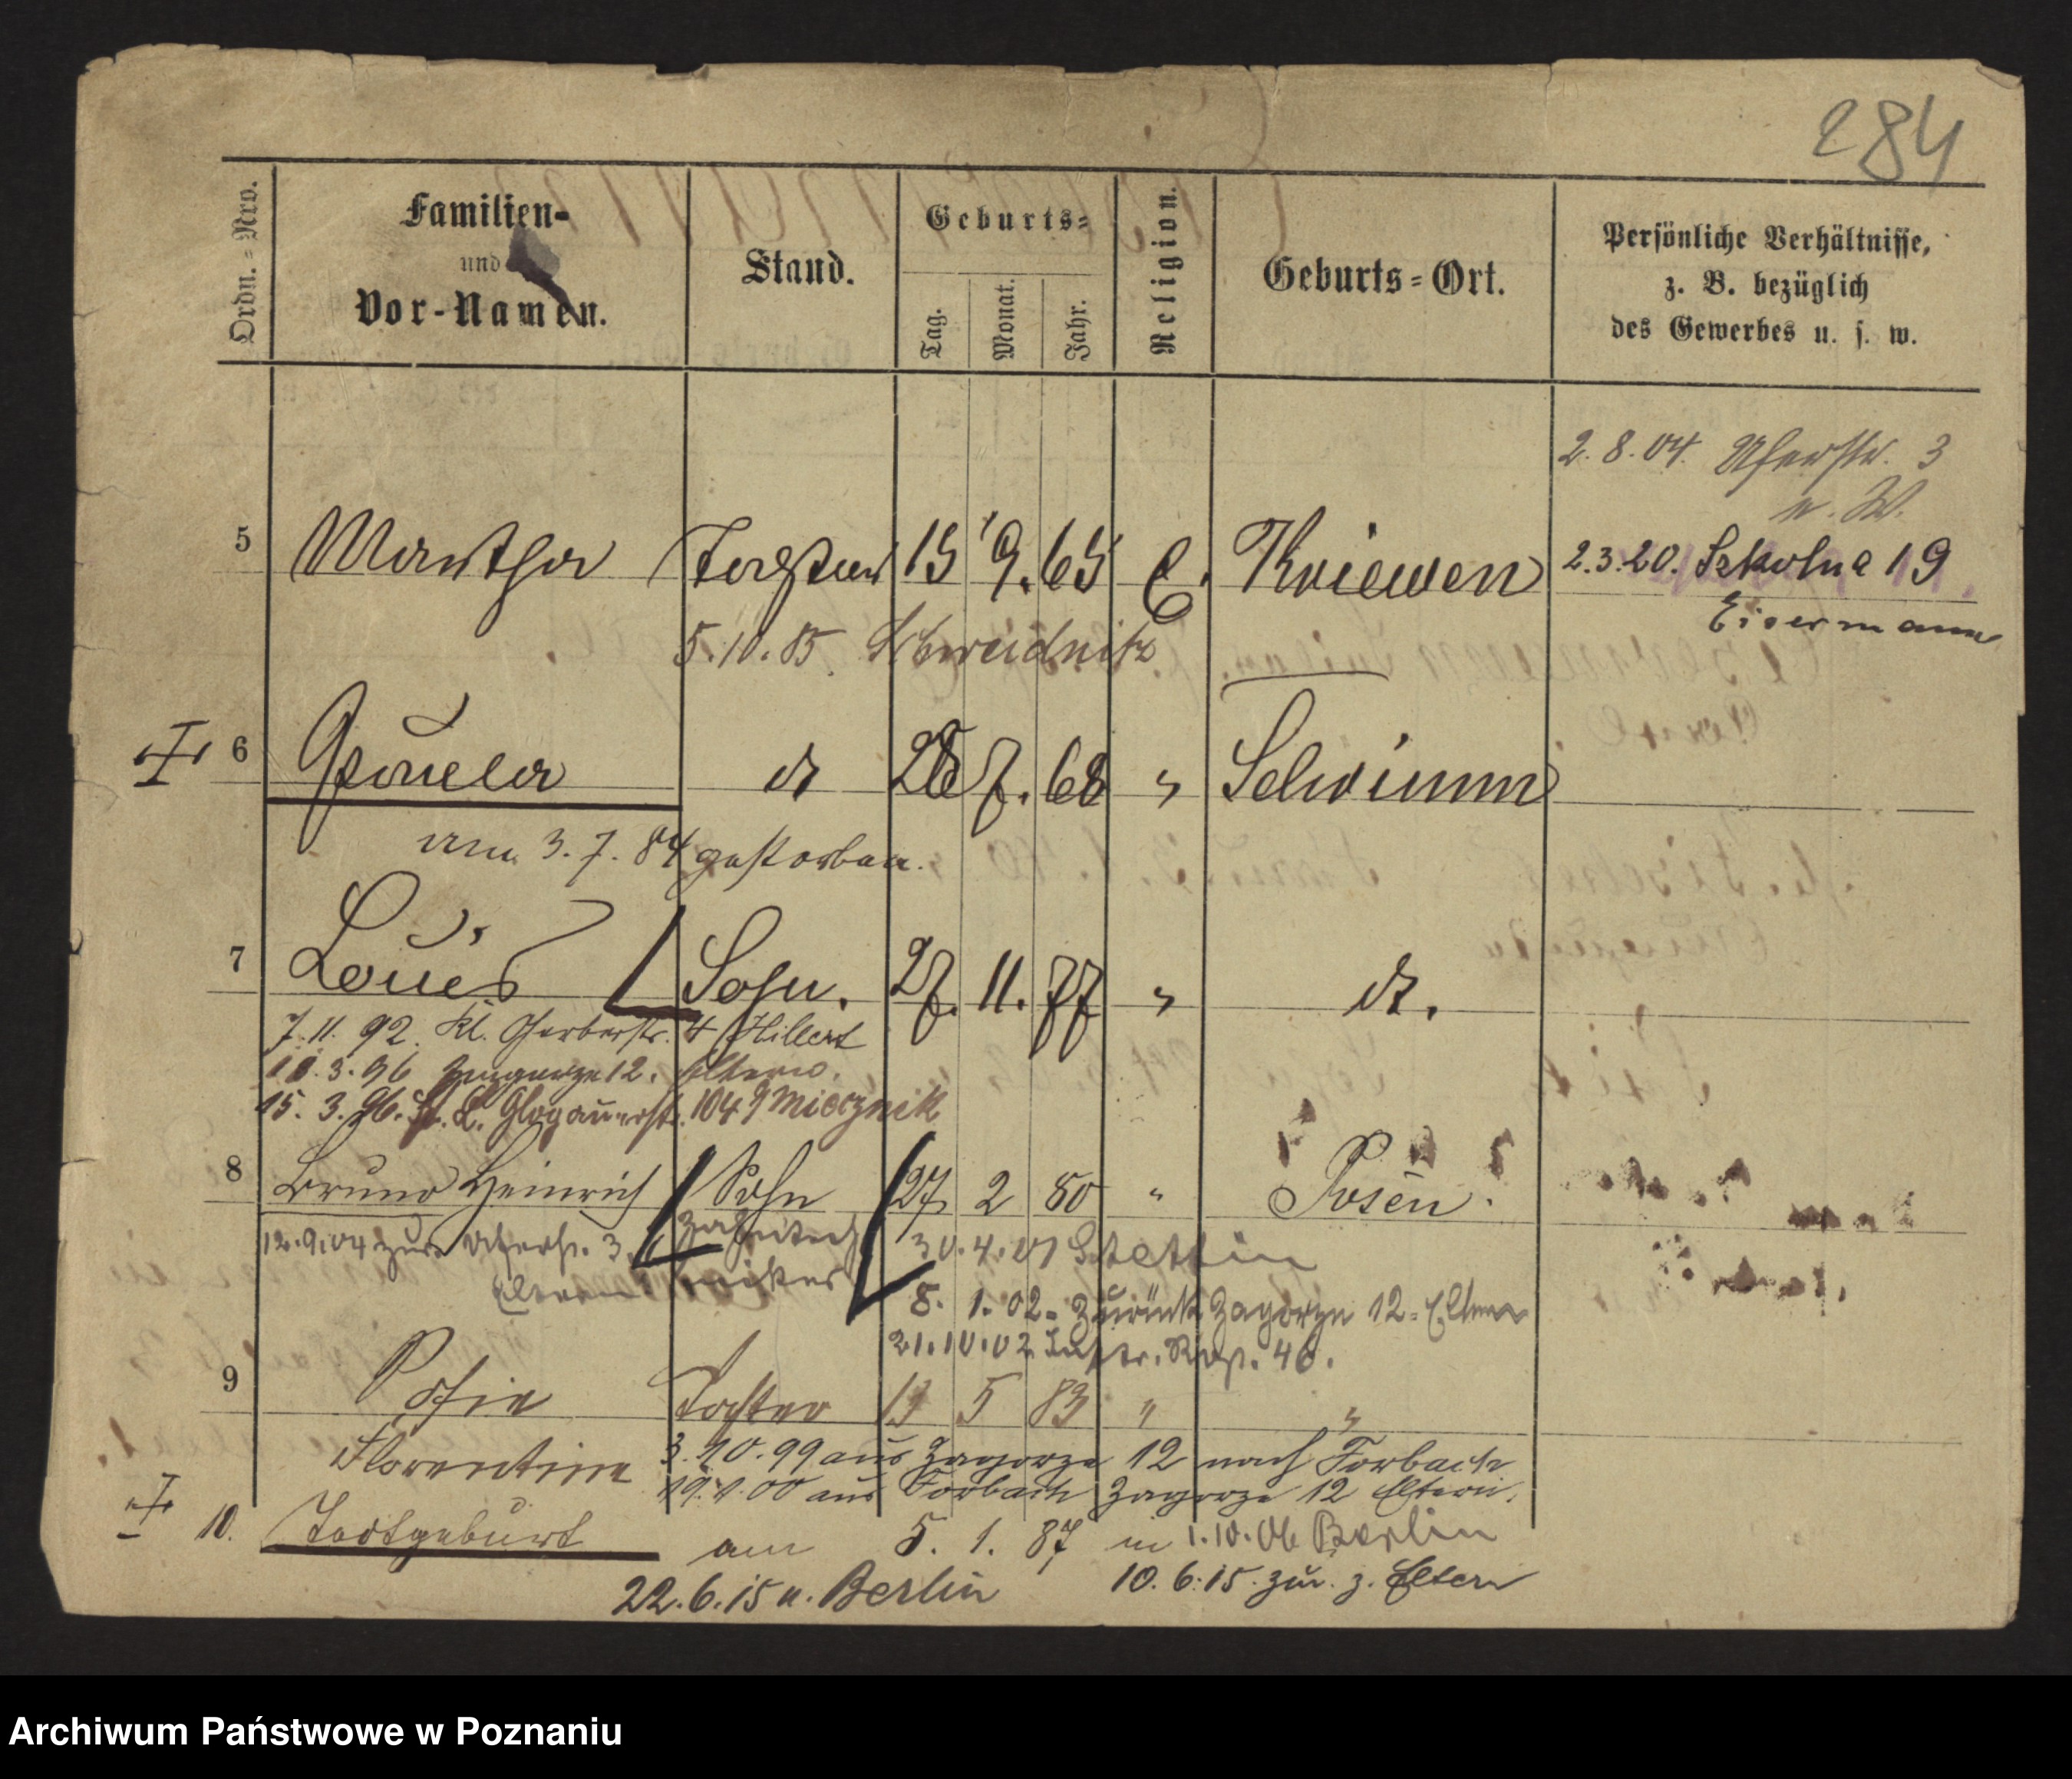 284
Ordn.=Nro.
Familien-
und
Vor-Namen.
Stand.
Geburts=
Tag.
Monat.
Jahr.
Religion.
Geburts=Ort.
Persönliche Verhältnisse,
z. B. bezüglich
des Gewerbes u. s. w.
2.8.04. Uferstr. 3
n. W.
5 Martha Tochter 15 9. 65 E. Kriewen
2.3.20. Szkolna 19
Eisermann
5.10.85 Schweidnitz
6 Paula d 7. 68 " Schrimm
am 3.7.84 gestorben.
7 Louis Sohn. 27. 11. 77 " d.
7.11.92. Kl. Gerberstr. 4 Hillert
3.96 Zagorze 12. Eltern.
15.3.96. St. L. Glogauerstr. 104 Miecznik
8 Bruno Heinrich Sohn 27 2 80 " Posen.
12.9.04 zur. Uferstr. 3. Eltern
Zahntechniker
30.4.01 Stettin
8. 1. 02. zurück Zagorze 12. Eltern
21.10.02 Inftr. Rgt. 46.
9 Sofie Tochter 13 5 83 " "
Florentine
3.10.99 aus Zagorze 12 nach Forbach
00 aus Forbach Zagorze 12 Eltern.
10. Todtgeburt am 5. 1. 87
in 1.10.06 Berlin
22.6.15 n. Berlin
10.6.15. zur. z. Eltern
Archiwum Państwowe w Poznaniu